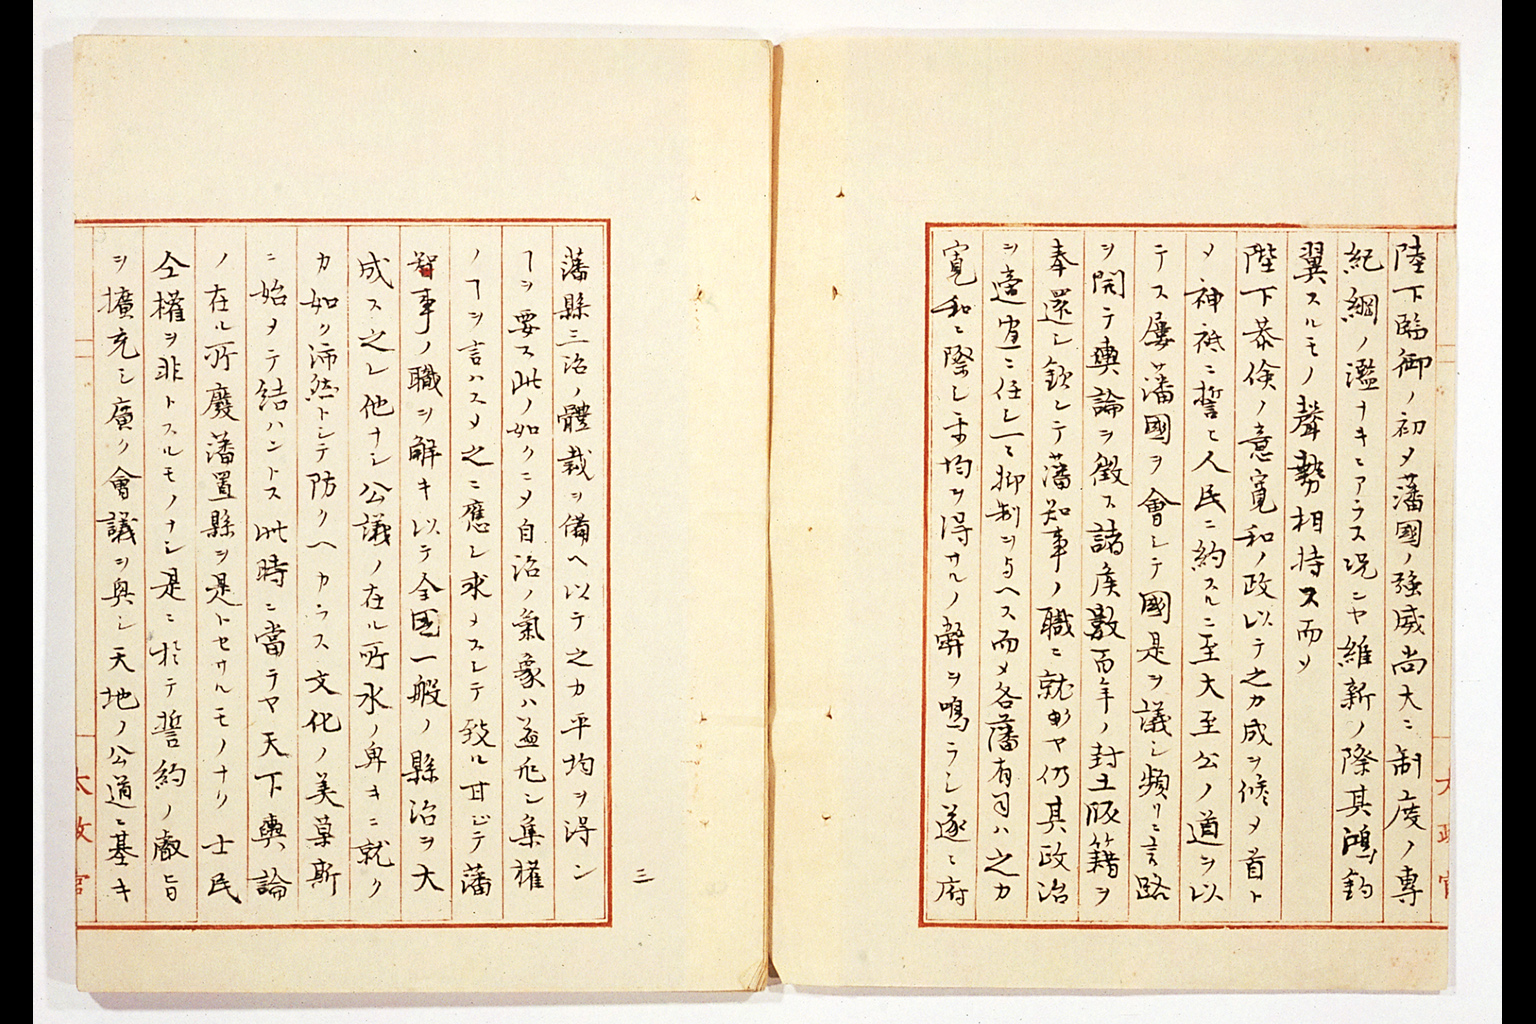 陛下臨御ノ初メ藩國ノ強威尚大ニ制度ノ專
紀綱ノ濫ナキニアラス況ニヤ維新ノ際其鴻鈞
翼スルモノ聲勢相持ス而メ
陛下恭倹ノ意寛和ノ政以テ之カ成ヲ修メ首ト
メ神祇ニ誓ヒ人民ニ約スルニ至大至公ノ道ヲ以
テス屡藩國ヲ會シテ國是ヲ議シ頻リニ言路
ヲ開テ輿論ヲ徴ス諸侯數百年ノ封土版籍ヲ
奉還シ欽シテ藩知事ノ職ニ就ヤ仍其政治
ヲ適宜ニ任シ一モ抑制ヲ与ヘス而メ各藩有司ハ之カ
寛和ニ際シ平均ヲ得サルノ弊ヲ鳴ラシ遂ニ府
藩縣三治ノ體裁ヲ備ヘ以テ之カ平均ヲ得ン
ヿヲ要ス此ノ如クニメ自治ノ氣象ハ益危シ集權
ノヿヲ言ハスメ之ニ應シ求メスシテ致ル甘シテ藩
智事ノ職ヲ解キ以テ全国一般ノ縣治ヲ大
成ス之レ他ナシ公議ノ在ル所水ノ卑キニ就ク
カ如ク沛然トシテ防クヘカラス文化ノ美草斯
ニ始メテ結ハントス此時ニ當テヤ天下輿論
ノ在ル所廢藩置縣ヲ是トセサルモノナク士民
仝權ヲ非トスルモノナシ是ニ於テ誓約ノ厳旨
ヲ擴充シ廣ク會議ヲ興シ天地ノ公道ニ基キ
三
太政官
太政官